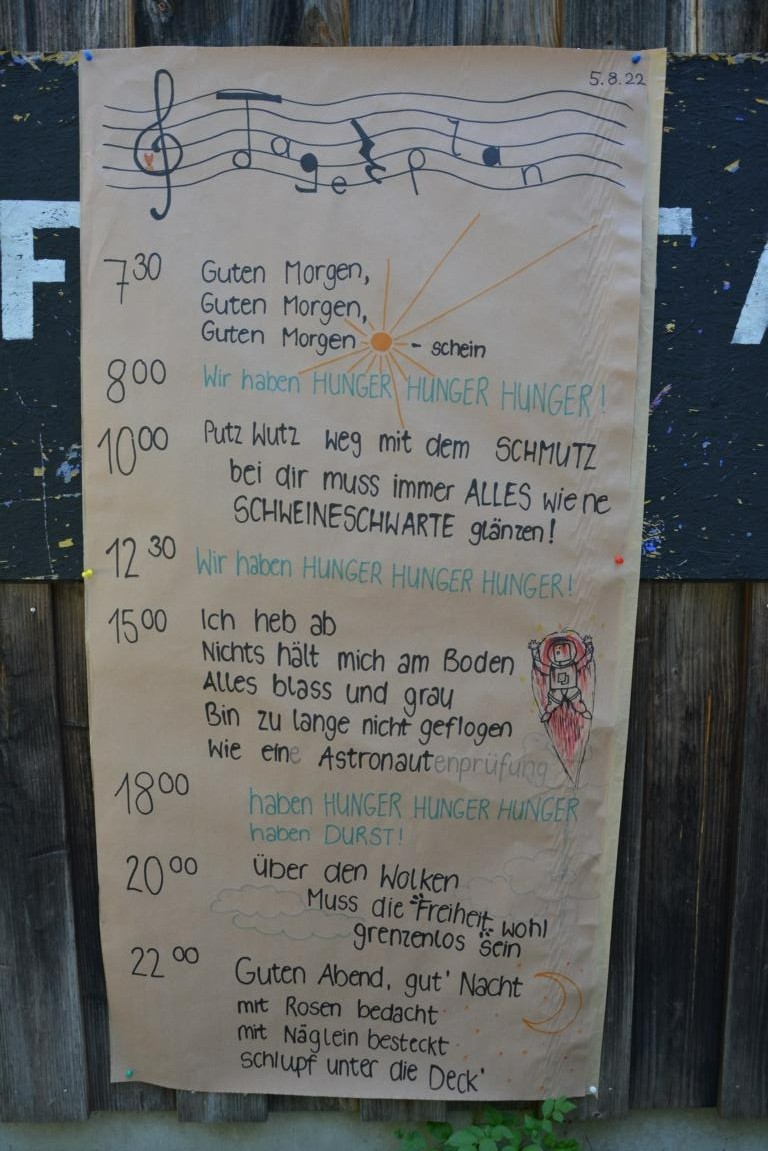 5.8.22
Tagesplan
7³⁰ Guten Morgen,
Guten Morgen,
Guten Morgen - schein
8⁰⁰ Wir haben HUNGER HUNGER HUNGER!
10⁰⁰ Putz Wutz weg mit dem SCHMUTZ
bei dir muss immer ALLES wie ne
SCHWEINESCHWARTE glänzen!
12³⁰ Wir haben HUNGER HUNGER HUNGER!
15⁰⁰ Ich heb ab
Nichts hält mich am Boden
Alles blass und grau
Bin zu lange nicht geflogen
Wie eine Astronautenprüfung
18⁰⁰ haben HUNGER HUNGER HUNGER
haben DURST!
20⁰⁰ über den Wolken
Muss die Freiheit wohl
grenzenlos sein
22⁰⁰ Guten Abend, gut' Nacht
mit Rosen bedacht
mit Näglein besteckt
schlupf unter die Deck'